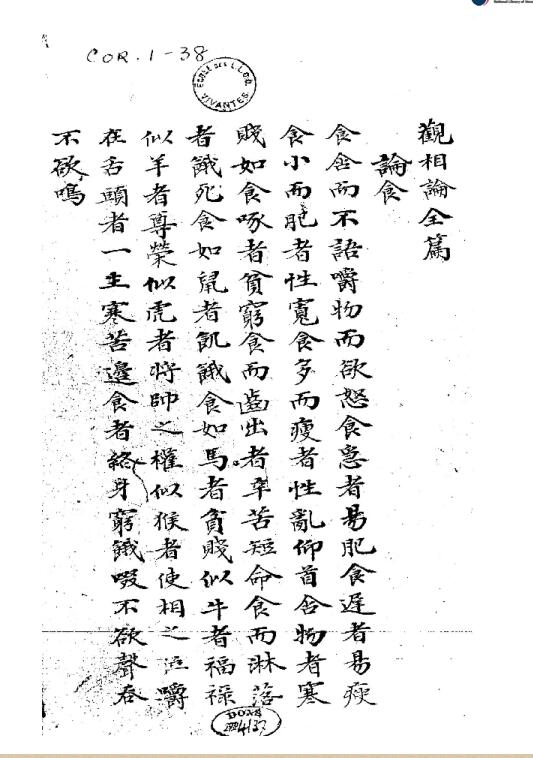 COR. 1-38
ECOLE DES L.L.O.O. VIVANTES
觀相論全篇
論食
食含而不語嚼物而欲怒食急者易肥食遲者易瘦
食小而肥者性寬食多而瘦者性亂仰首含物者寒
賤如食啄者貧窮食而齒出者辛苦短命食而淋落
者餓死食如鼠者飢餓食如馬者貧賤似牛者福祿
似羊者尊榮似虎者將帥之權似猴者使相之位嚼
在舌頭者一生寒苦邊食者終身窮餓啜不欲聲吞
不欲鳴
DON
4137